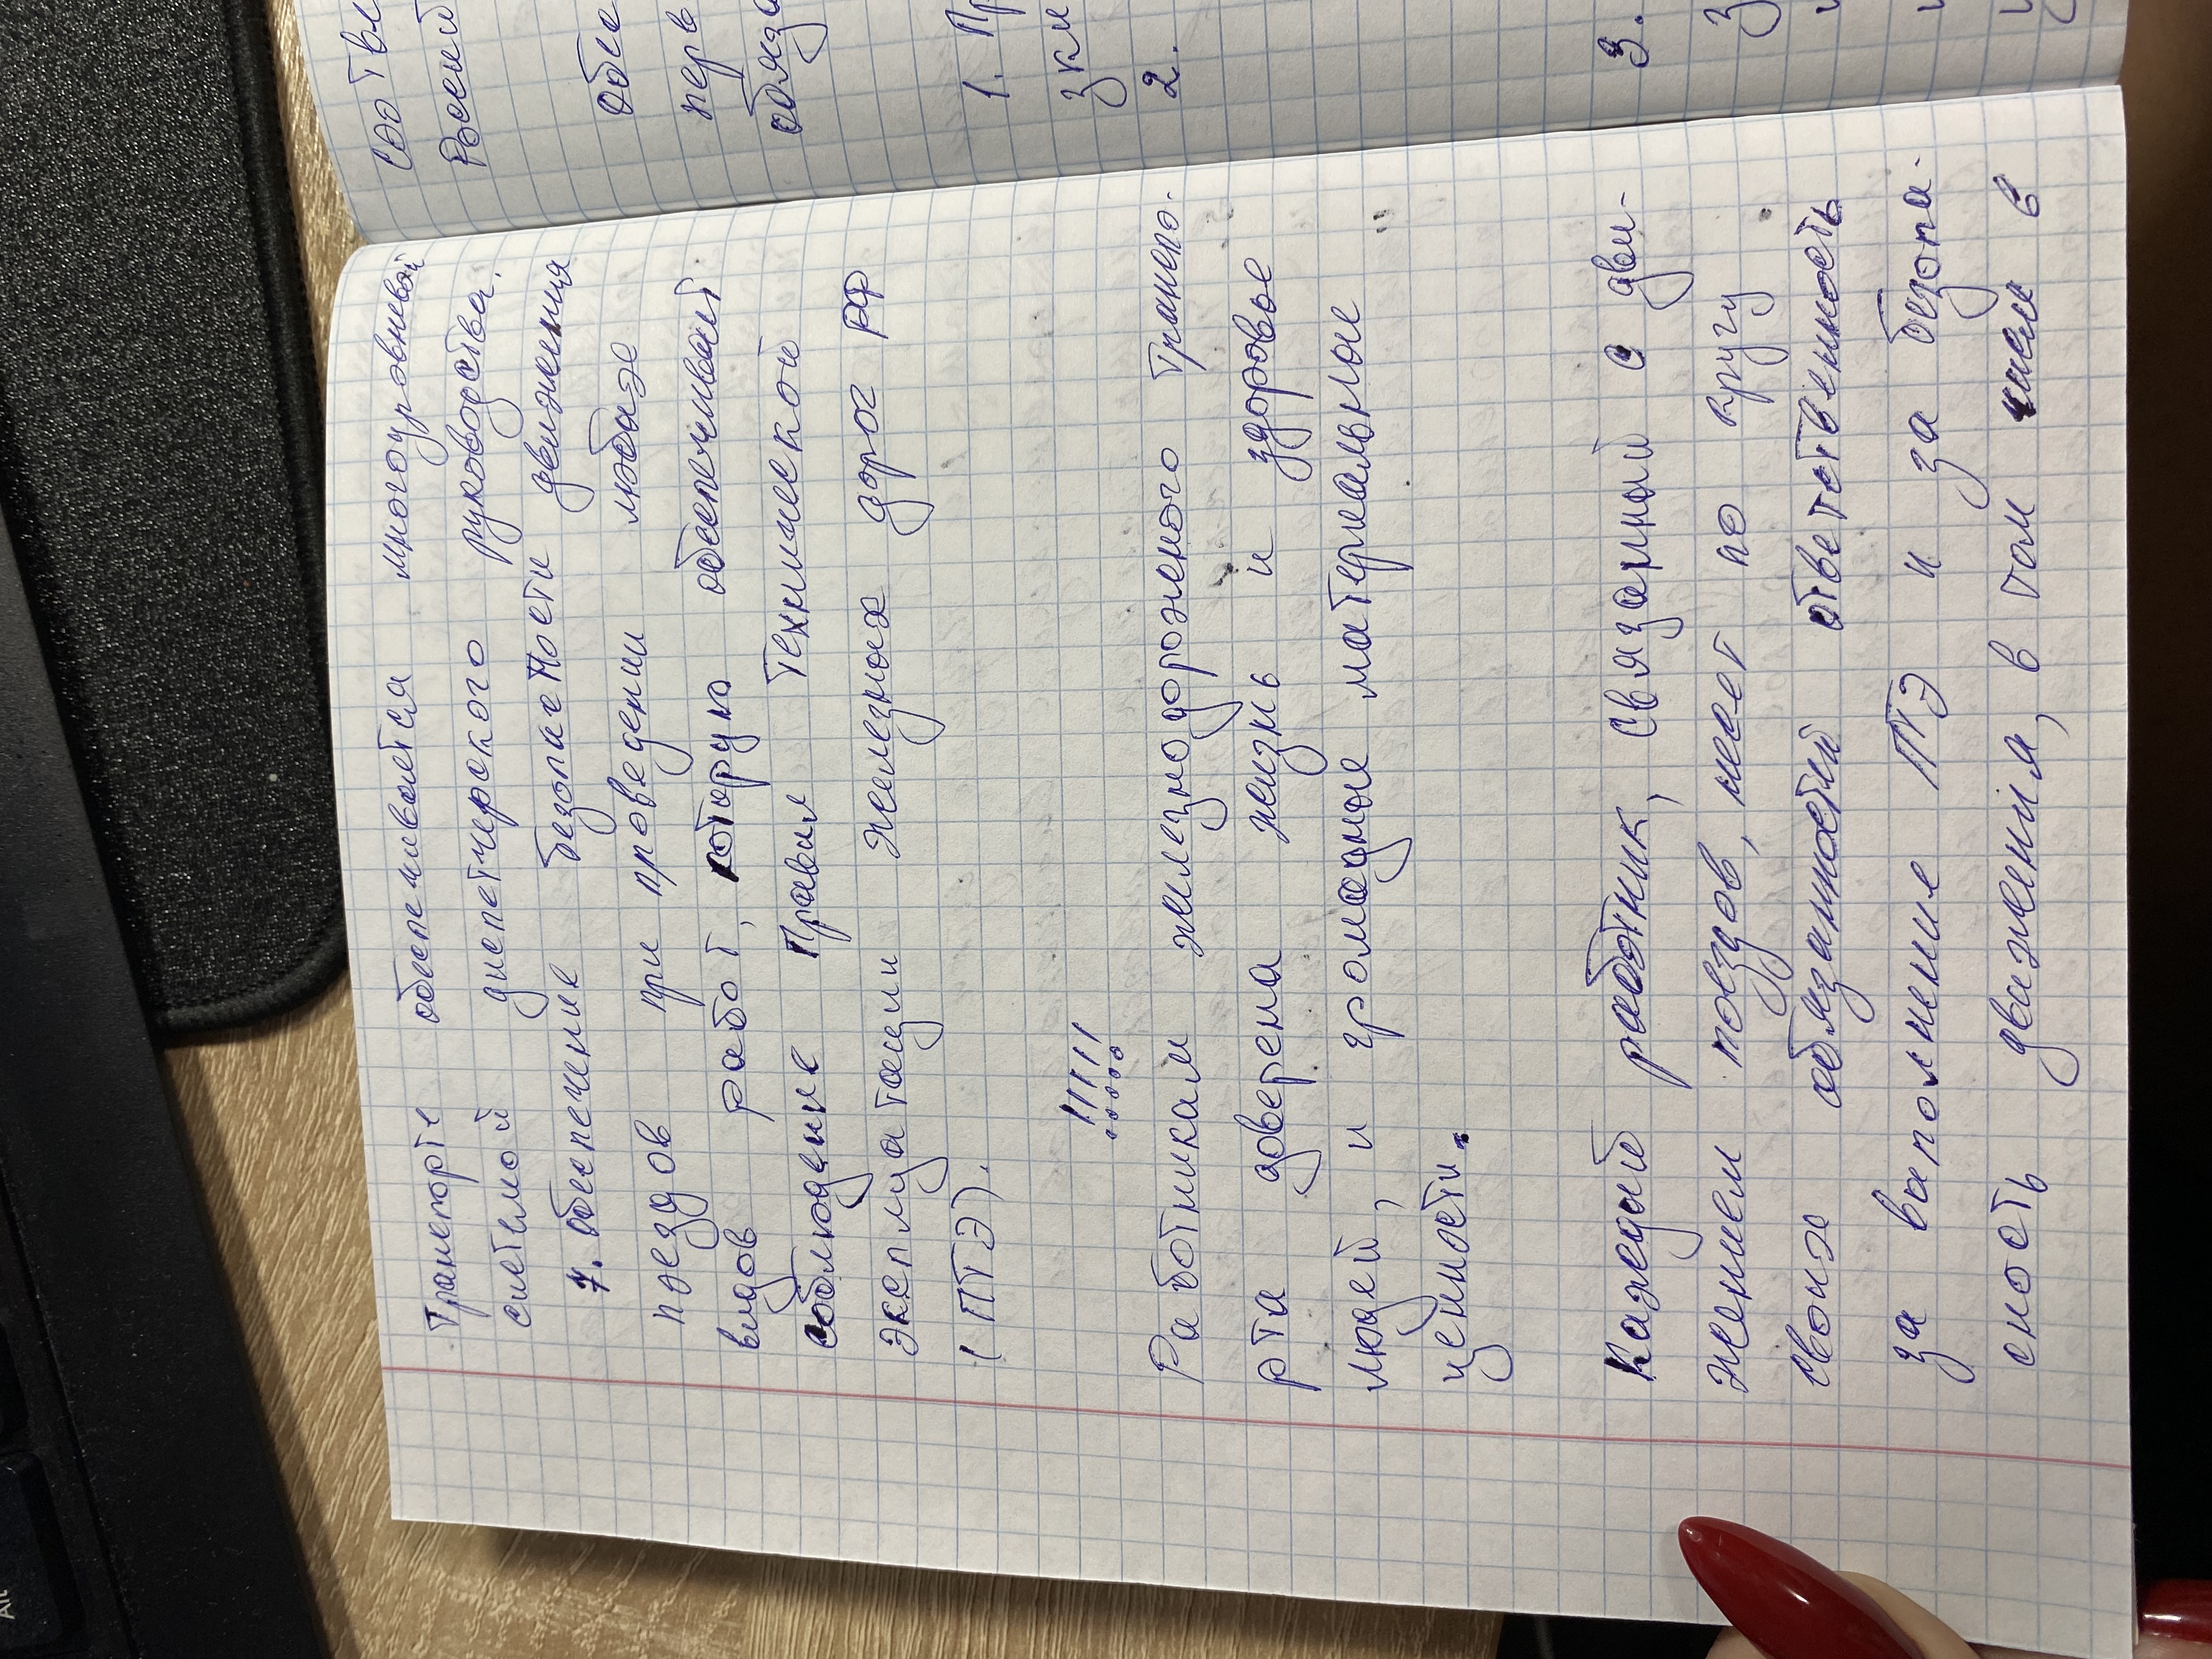 Транспорте обеспечивается многоуровневой
системой диспетчерского руководства.
7. Обеспечение безопасности движения
поездов при проведении любых
видов работ, которую обеспечивает
соблюдение Правил Технической
эксплуатации железных дорог РФ
(ПТЭ).
!!!!!
Работникам железнодорожного трансп-
рта доверена жизнь и здоровье
людей, и громадные материальные
ценности.
Каждый работник, связанный с дви-
жением поездов, несет по кругу
своих обязанностей ответственность
за выполнение ПТЭ и за безопа-
сность движения, в том числе в
соотве
Россий
обяза
1. Пр
2.
3.